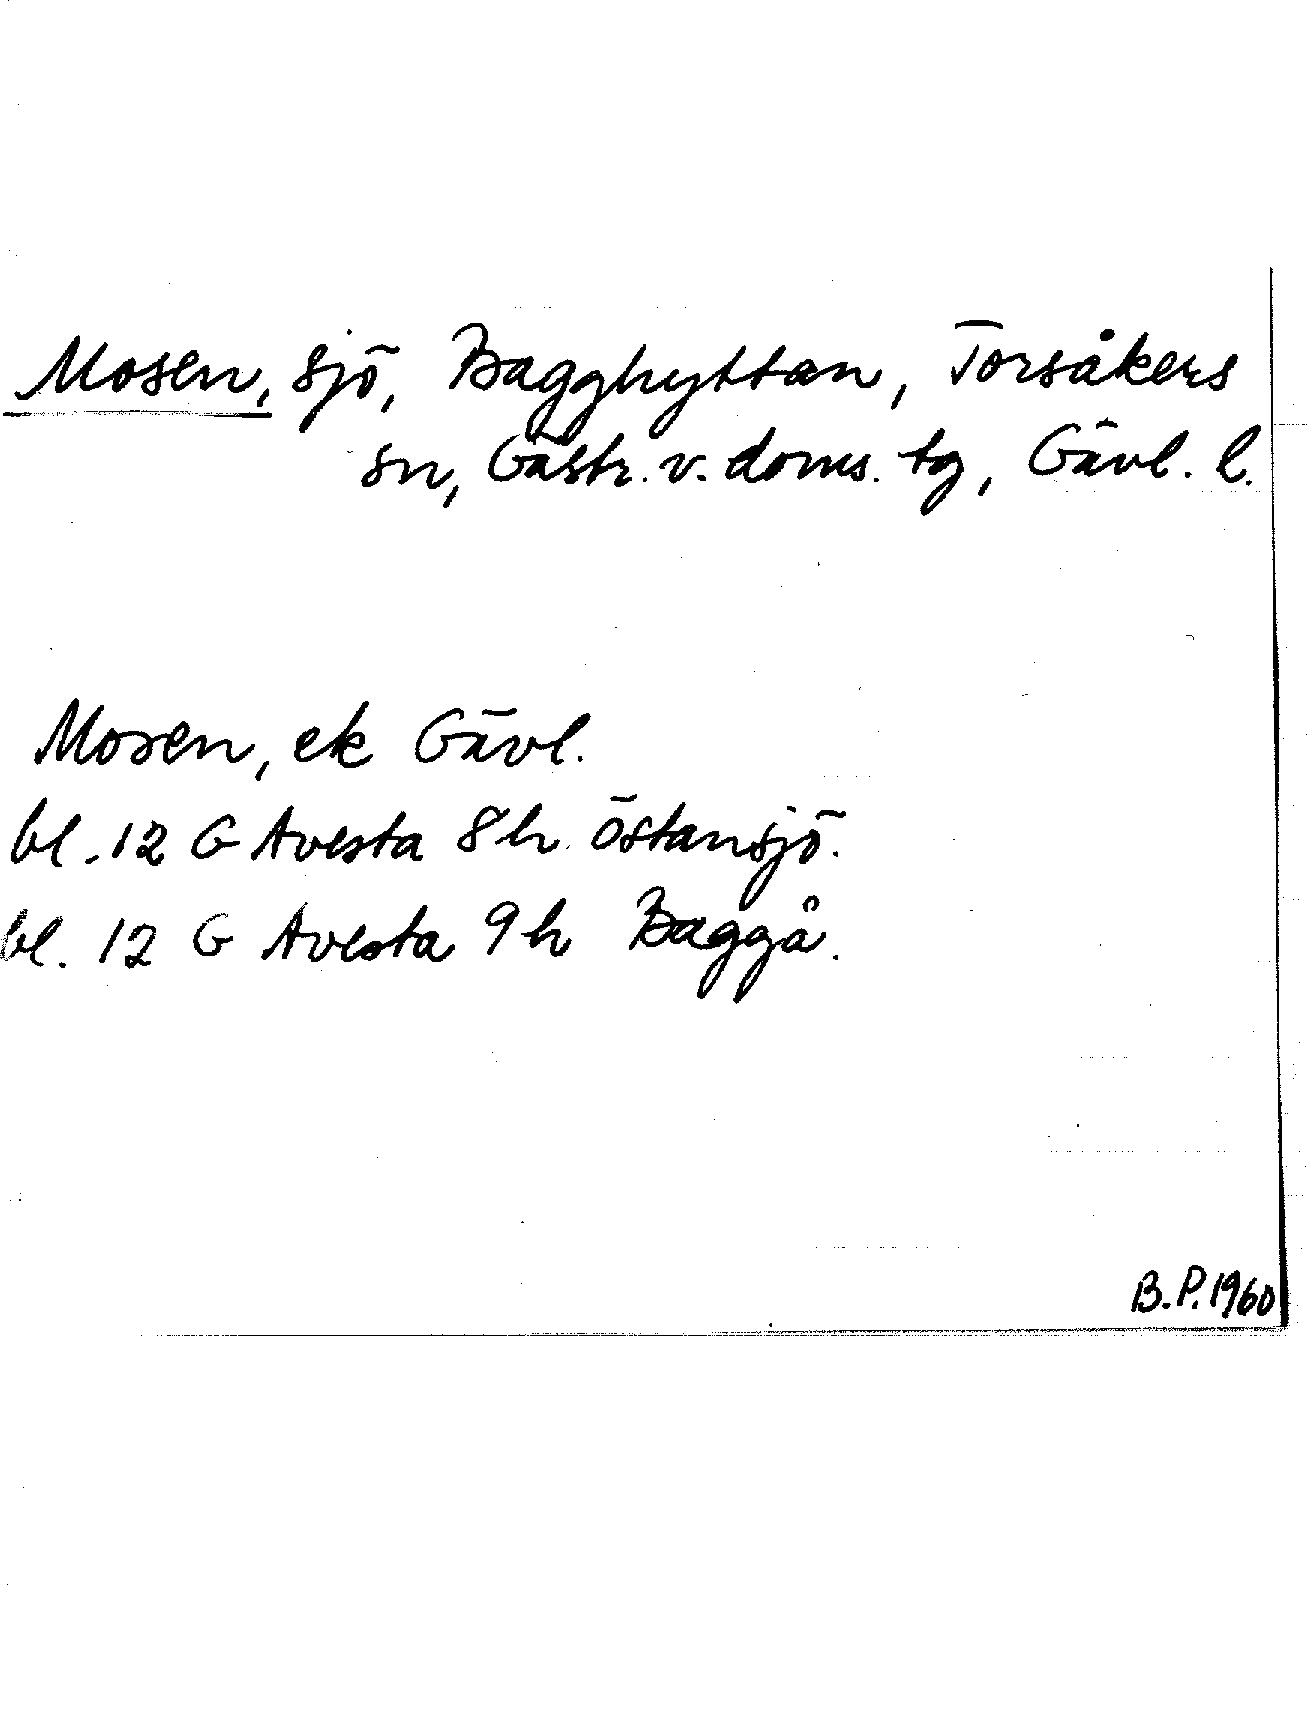 Mosen, sjö, Bagghyttan, Torsåkers
sn, Gästr. v. doms. tg, Gävl. l.
Mosen, ek Gävl.
bl. 12 G Avesta 8h Östansjö.
bl. 12 G Avesta 9h Baggå.
B.P. 1960